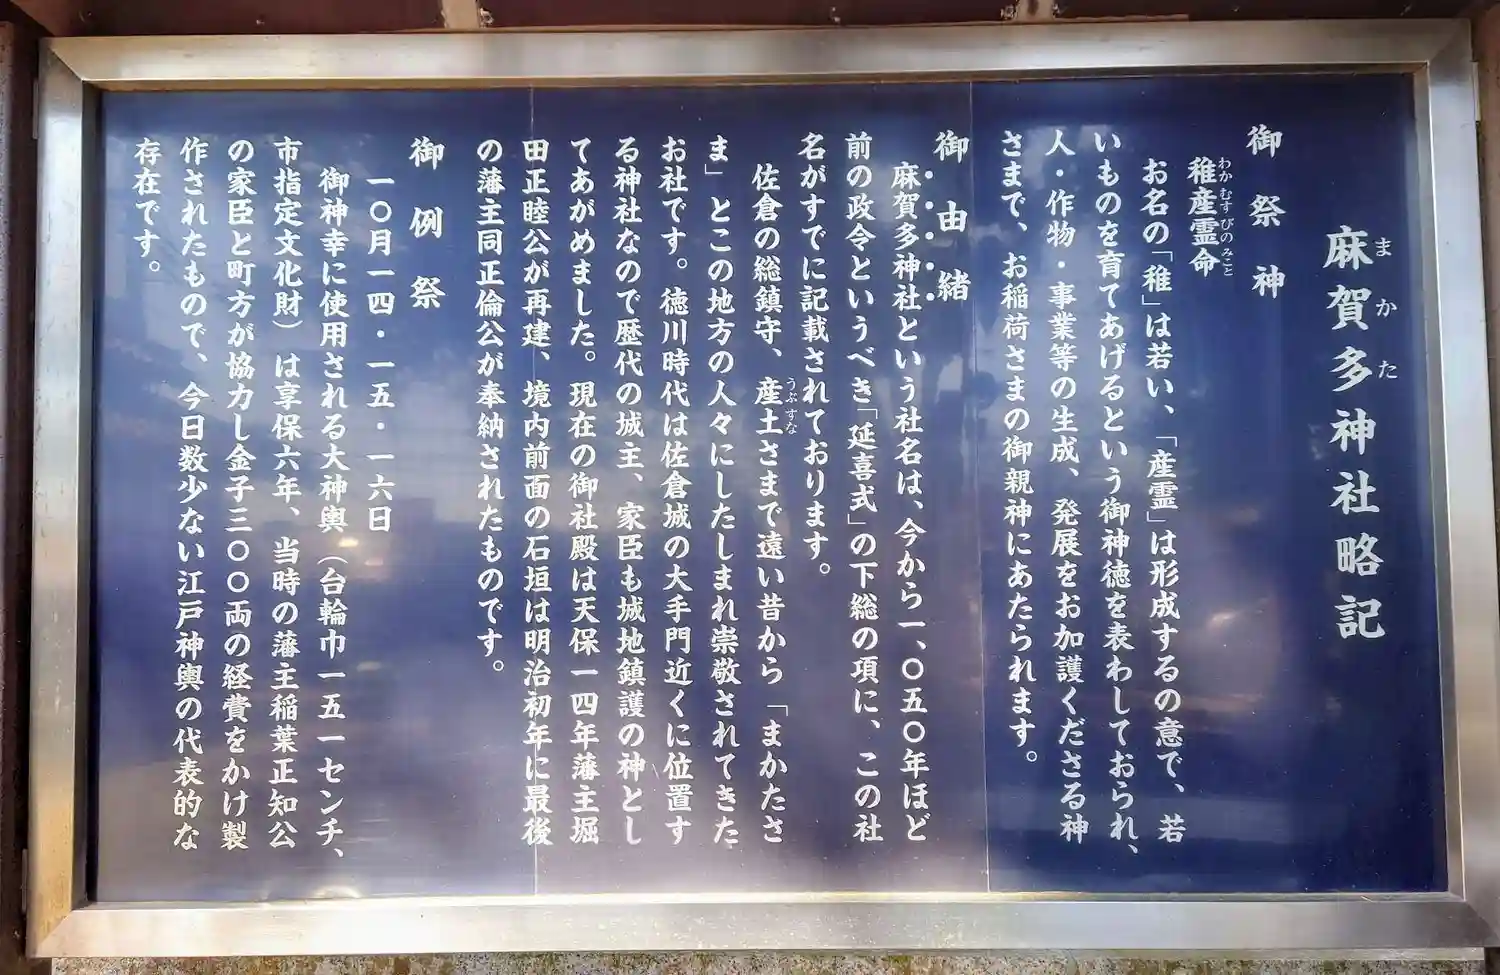 麻賀多神社略記
まかた
御祭神
稚産霊命
わかむすびのみこと
お名の「稚」は若い、「産霊」は形成するの意で、若
いものを育てあげるという御神徳を表わしておられ、
人・作物・事業等の生成、発展をお加護くださる神
さまで、お稲荷さまの御親神にあたられます。
御由緒
麻賀多神社という社名は、今から一、〇五〇年ほど
前の政令というべき「延喜式」の下総の項に、この社
名がすでに記載されております。
佐倉の総鎮守、産土さまで遠い昔から「まかたさ
うぶすな
ま」とこの地方の人々にしたしまれ崇敬されてきた
お社です。徳川時代は佐倉城の大手門近くに位置す
る神社なので歴代の城主、家臣も城地鎮護の神とし
てあがめました。現在の御社殿は天保一四年藩主堀
田正睦公が再建、境内前面の石垣は明治初年に最後
の藩主同正倫公が奉納されたものです。
御例祭
一〇月一四・一五・一六日
御神幸に使用される大神輿（台輪巾一五一センチ、
市指定文化財）は享保六年、当時の藩主稲葉正知公
の家臣と町方が協力し金子三〇〇両の経費をかけ製
作されたもので、今日数少ない江戸神輿の代表的な
存在です。